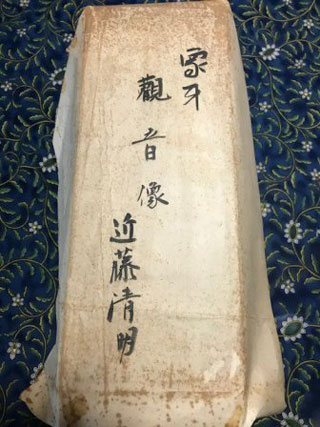 象牙
觀音像
近藤清明